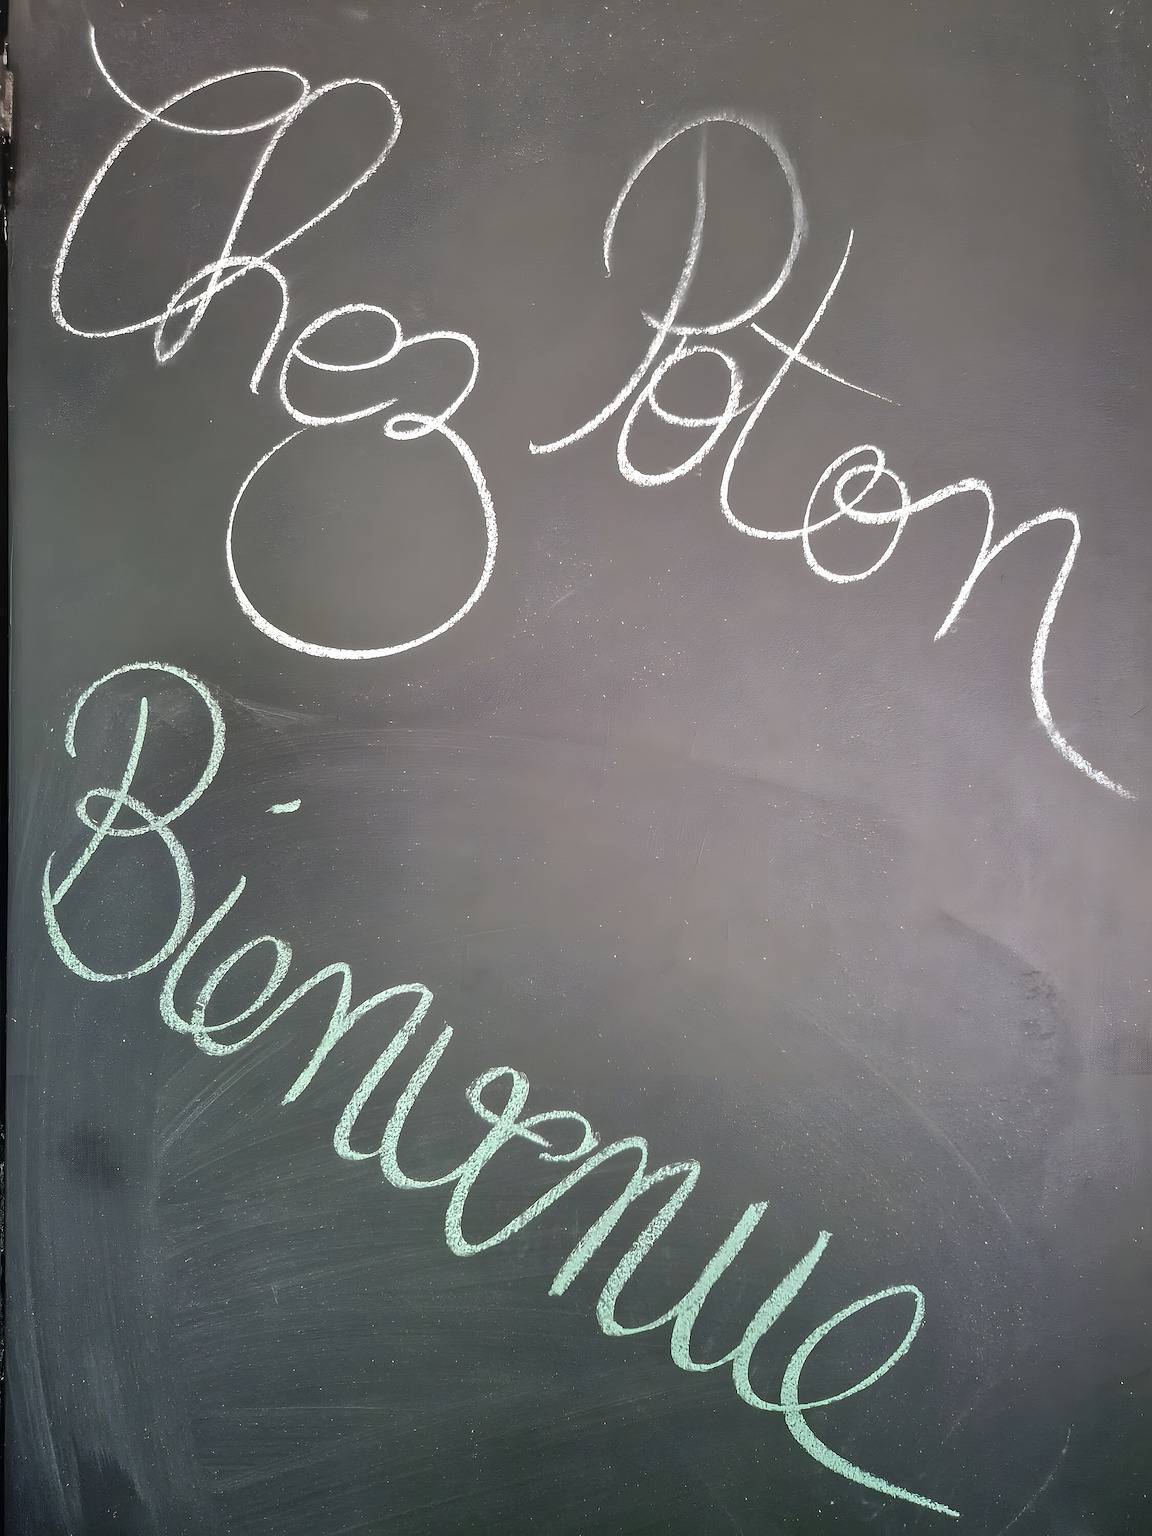 Chez Poton
Bienvenue